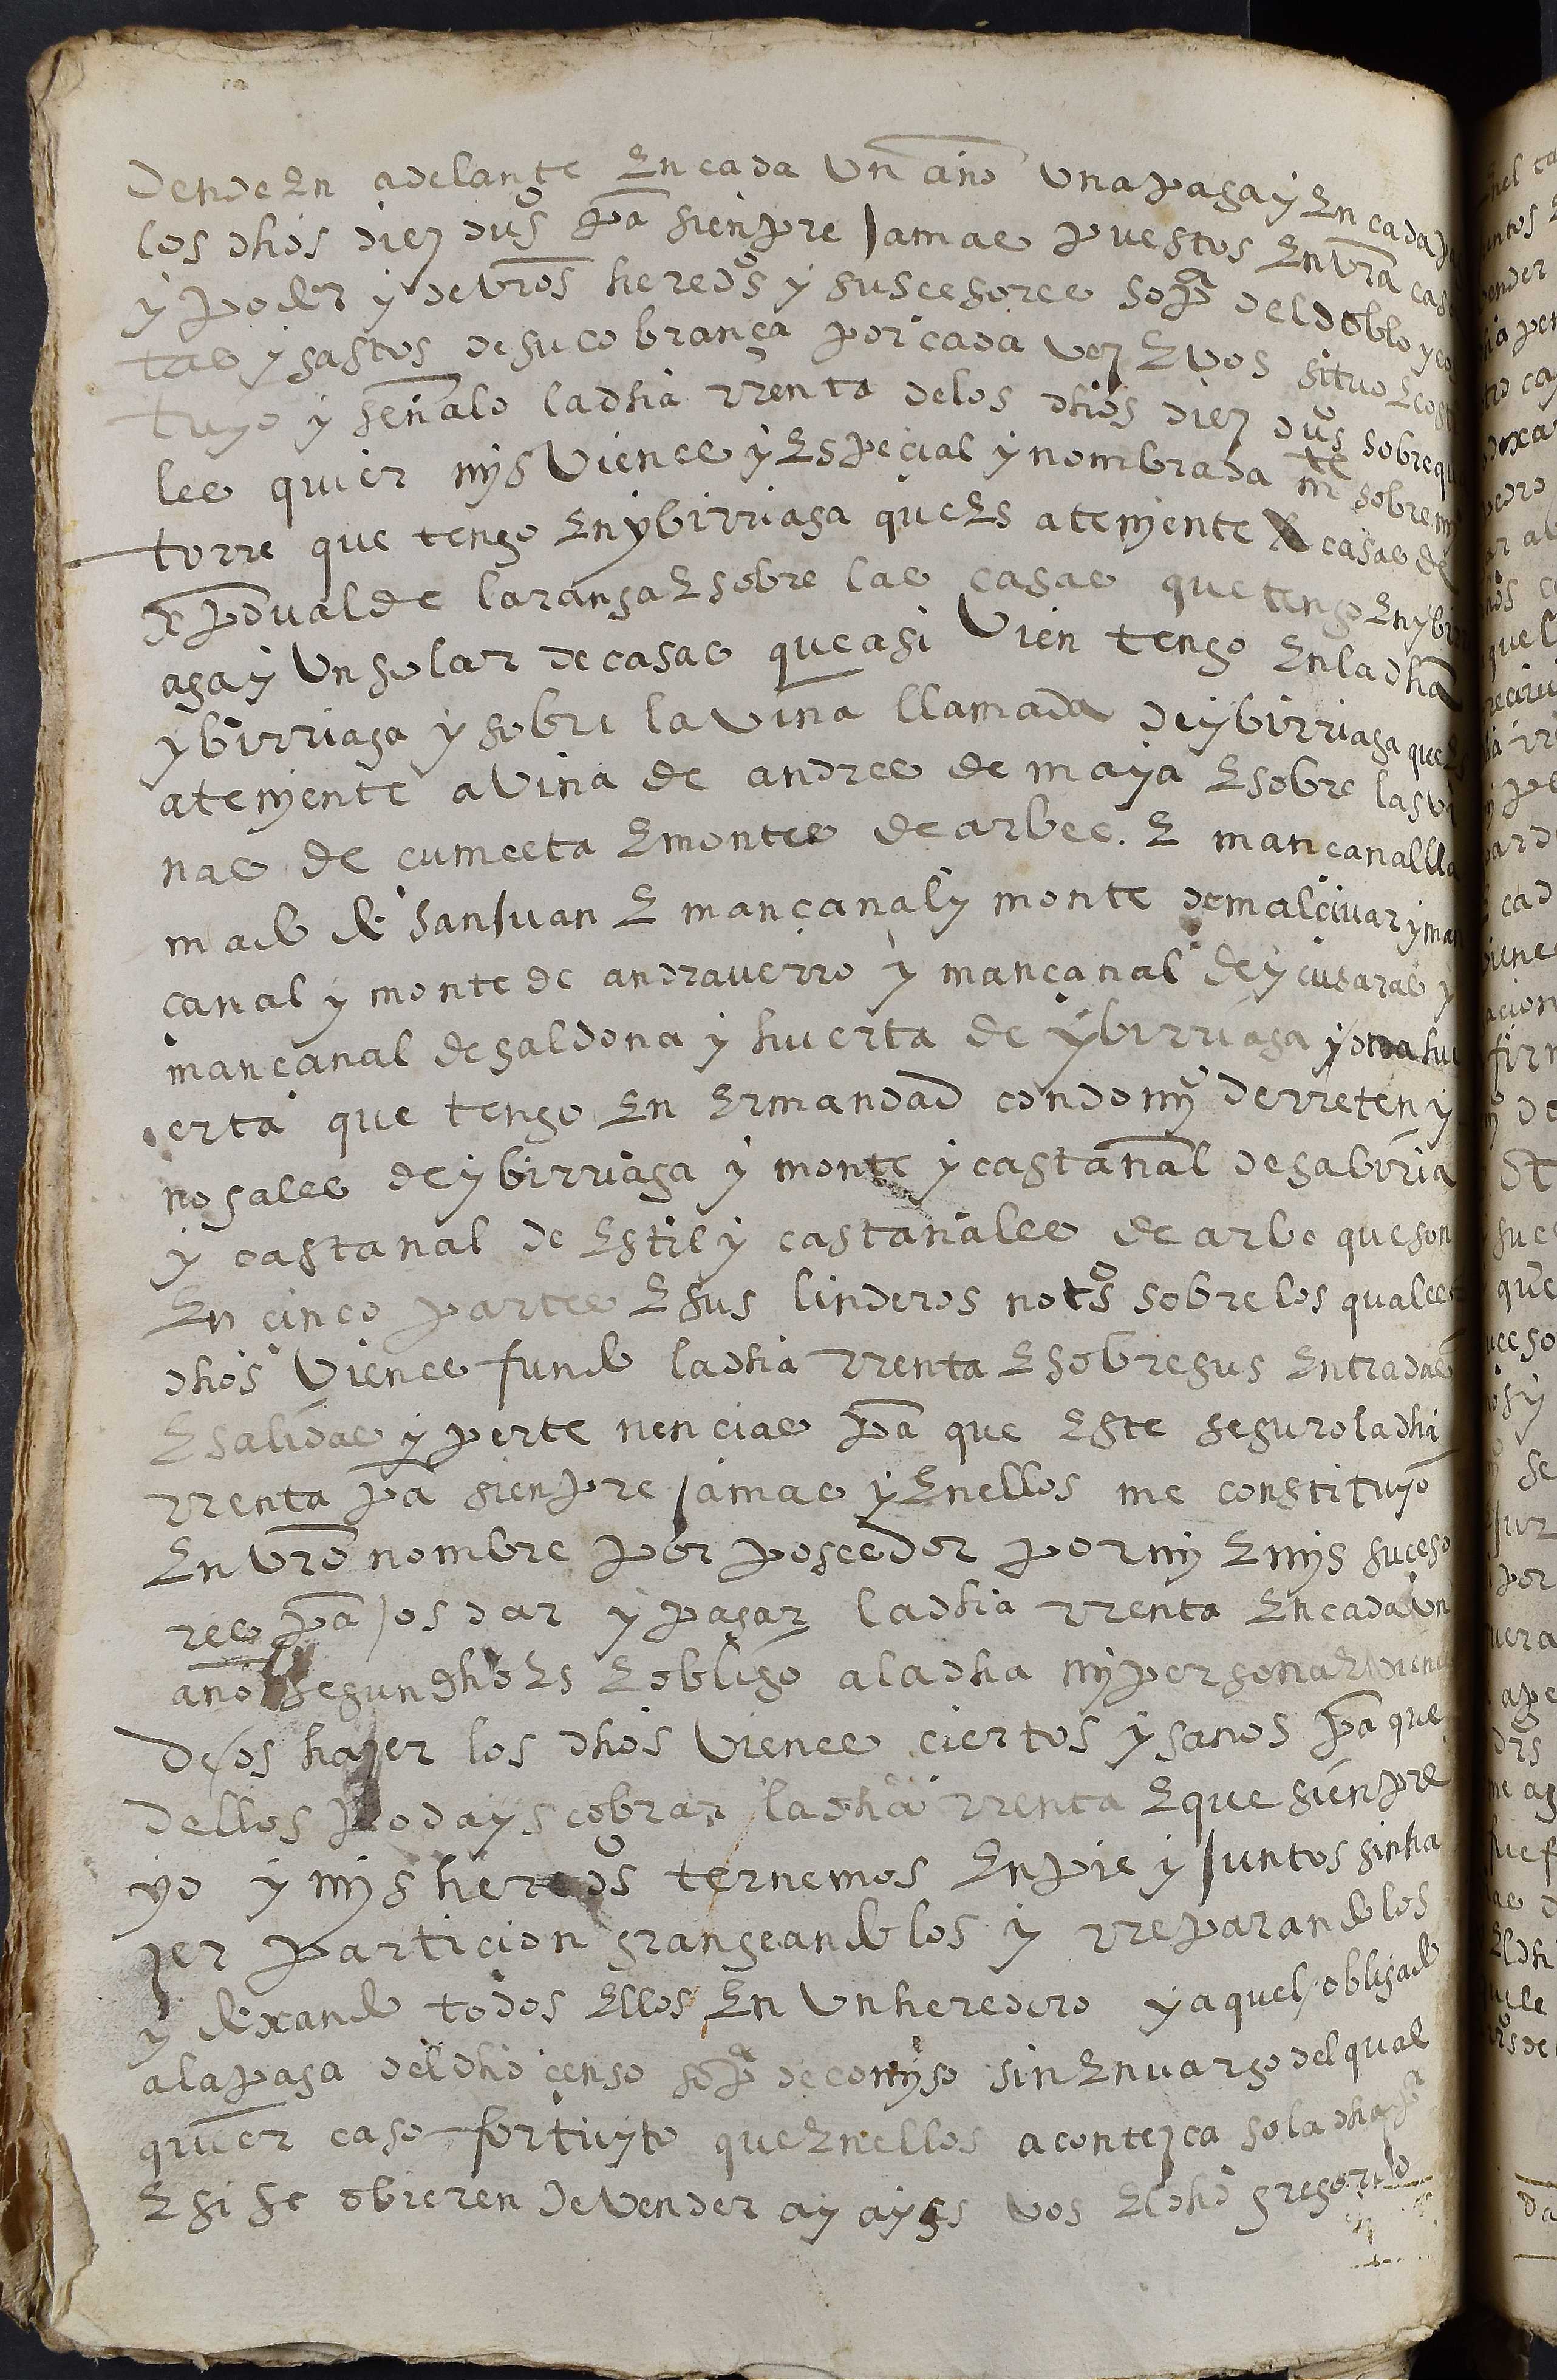 dende en adelante en cada un año una paga y en cada
los dhos diez dus pa sienpre jamas puestos en vra casa
y poder y de vros hereds y suscesores so pa del doblo y cos
tas y gastos de su cobrança por cada vez e vos situo e costi
tuyo y señalo la dha rrenta de los dhos diez dus sobre qua
les quier mys vienes y especial y nombrada mte sobre my
torre que tengo en ybirriaga ques atenyente a casas de
po ual de laranga e sobre las casas que tengo en ybirri
aga y un solar de casas que asi vien tengo en la dha
ybirriaga y sobre la viña llamada de ybirriaga ques
atenyente a viña de andres de maya e sobre las vi
ñas de cumeeta e montes de arbes. e mançanal lla
mado de san juan e mançanal y monte de malcivar y man
çanal y monte de andraverro y mançanal de ycusaras y
mançanal de galdona y huerta de ybirriaga y otra hu
erta que tengo en ermandad con domyo de rreten y
nogales de ybirriaga y monte y castañal de gabiria
y castanal de estil y castañales de arbe que son
en cinco partes e sus linderos notos sobre los quales
dhos vienes fundo la dha rrenta e sobre sus entradas
e salidas y perte nencias pa que este seguro la dha
rrenta pa sienpre jamas y en ellos me constituyo
en vro nombre por poseedor por my e mys suceso
res pa os dar y pagar la dha rrenta en cada un
año segun dho es e obligo a la dha my persona e vienes
de os hazer los dhos vienes ciertos y sanos pa que
dellos podays cobrar la dha rrenta e que sienpre
yo y mys hereds ternemos en pie y juntos sin ha
zer particion grangeando los y rreparando los
y dexando todos ellos en un heredero y aquel obligado
a la paga del dho çenso so pa de comyso sin envargo del qual
quier caso fortuyto que en ellos acontezca so la dha pa
e si se obreren de vender ay ays vos el dho gregorio